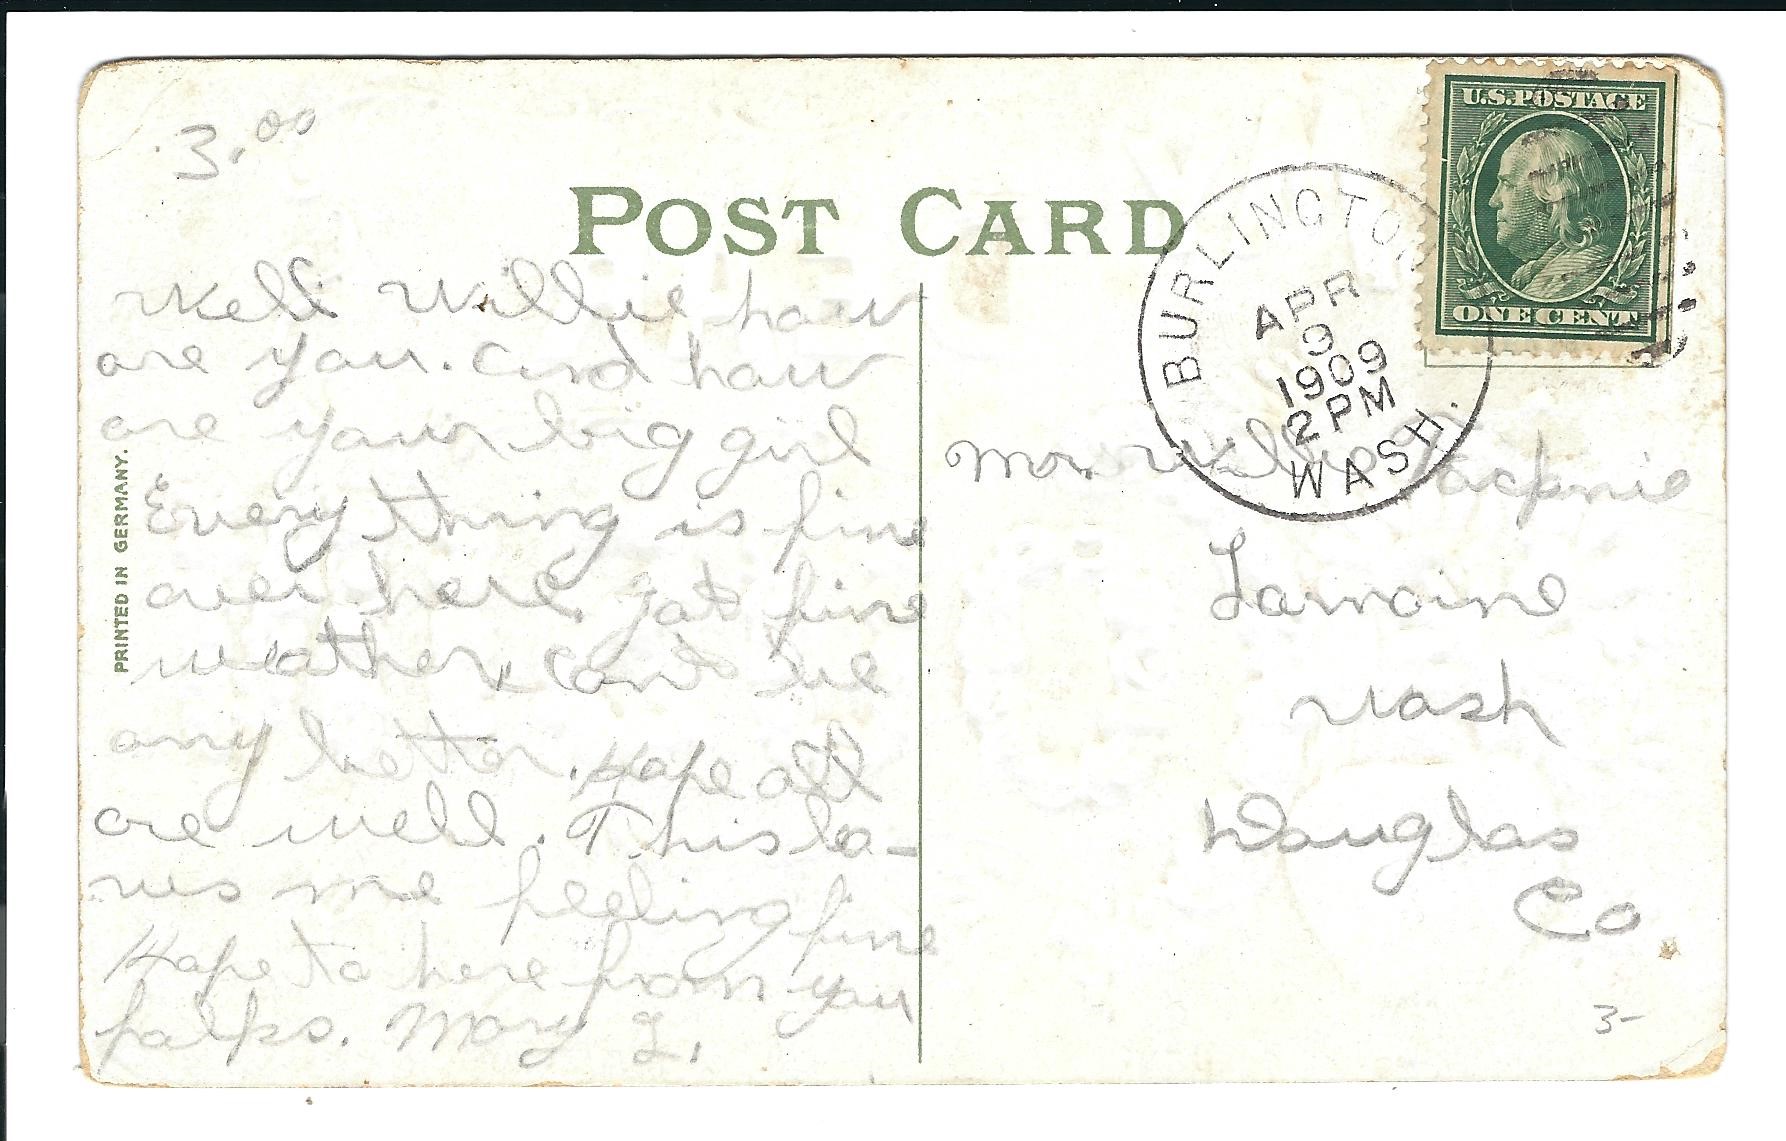 3.00
POST CARD
U.S. POSTAGE
ONE CENT
BURLINGTON
APR
9
1909
2 PM
WASH.
PRINTED IN GERMANY.
Well Willie how
are you. and how
are your big girl
Every thing is fine
over here. Got fine
weather, cant be
any better. Hope all
are well. This lea-
ves me feeling fine
Hope to here from you
falks. Mary L.
Mr. Willie
Lamoine
Wash
Douglas
Co
3-